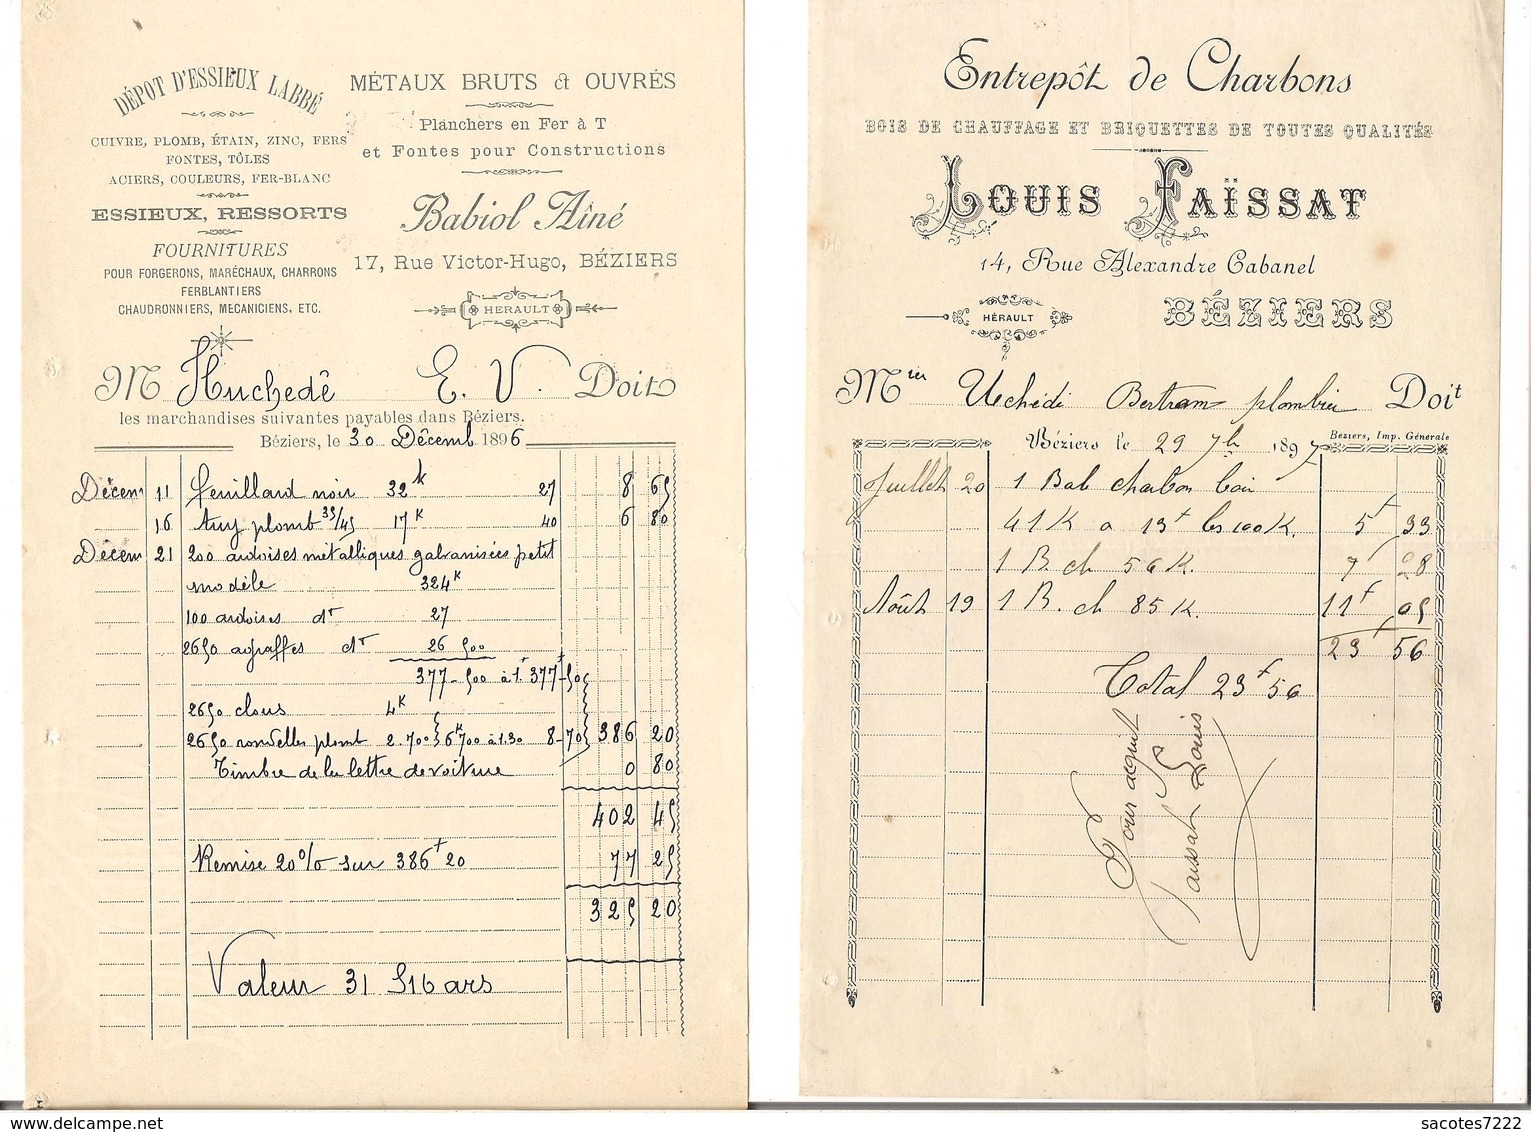 DÉPOT D'ESSIEUX LABBÉ
CUIVRE, PLOMB, ÉTAIN, ZINC, FERS
FONTES, TÔLES
ACIERS, COULEURS, FER-BLANC
ESSIEUX, RESSORTS
FOURNITURES
POUR FORGERONS, MARÉCHAUX, CHARRONS
FERBLANTIERS
CHAUDRONNIERS, MECANICIENS, ETC.
MÉTAUX BRUTS & OUVRÉS
Planchers en Fer à T
et Fontes pour Constructions
Babiol Aîné
17, Rue Victor-Hugo, BÉZIERS
HERAULT
M Huchedé E. V. Doit
les marchandises suivantes payables dans Béziers.
Béziers, le 30 Décemb 1896
Décem 11 Feuillard noir 32k 27 8 65
16 Tuy plomb 35/45 17k 40 6 80
Décem 21 200 ardoises métalliques galvanisées petit
modèle 324k
100 ardoises dr 27
2650 agraffes dr 26 500
377-500 à 1f 377f-50
2650 clous 4k
2650 rondelles plomb 2.700 6k700 à 1.30 8-70 386 20
Timbre de la lettre de voiture 0 80
402 45
Remise 20% sur 386f20 77 25
325 20
Valeur 31 Mars
Entrepôt de Charbons
BOIS DE CHAUFFAGE ET BRIQUETTES DE TOUTES QUALITÉS
LOUIS FAÏSSAT
14, Rue Alexandre Cabanel
HÉRAULT
BÉZIERS
Mier Uchédé Bertram plombier Doit
Béziers le 29 7bre 1897
Béziers, Imp. Générale
Juillet 20 1 Bal charbon
41 K a 13f les 100 K. 5f 33
1 B. ch 56 K. 7f 28
Août 19 1 B. ch 85 K. 11f 05
23f 56
Total 23f 56
Pour acquit
Faissat Louis
sacotes7222